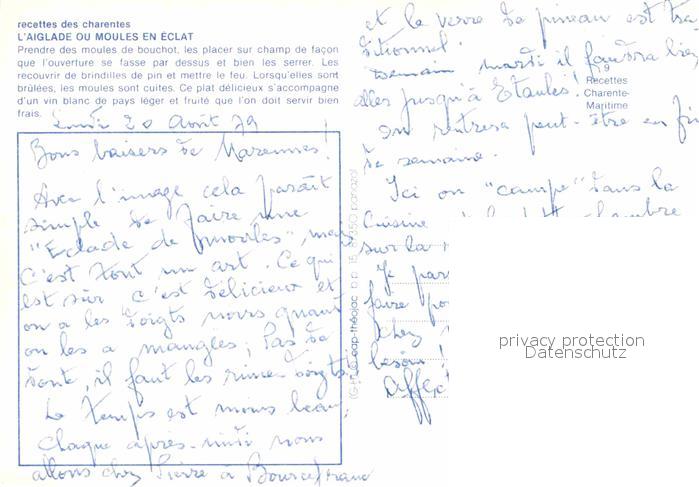 recettes des charentes
L'AIGLADE OU MOULES EN ÉCLAT
Prendre des moules de bouchot, les placer sur champ de façon
que l'ouverture se fasse par dessus et bien les serrer. Les
recouvrir de brindilles de pin et mettre le feu. Lorsqu'elles sont
brûlées, les moules sont cuites. Ce plat délicieux s'accompagne
d'un vin blanc de pays léger et fruité que l'on doit servir bien
frais.
Lundi 20 Août 79
Bons baisers de Marennes!
Avec l'image cela paraît
simple de faire une
"Eclade de moules", mais
c'est tout un art. Ce qui
est sûr c'est délicieux et
on a les doigts noirs quand
on les a mangées; Pas de
doute, il faut les rince doigts.
Le temps est moins beau,
chaque après-midi nous
allons chez Pierre à Bourcefranc
et le verre de pineau est tra
ditionnel.
Demain mardi il faudra bien
aller jusqu'à Etaules!
On rentrera peut-être en fin
de semaine.
Ici on "campe" dans la
cuisine chambre
sur la
Je par
faire po
chez
besoin!
Affec
19
Recettes
Charente-
Maritime
cap-théojac
privacy protection
Datenschutz